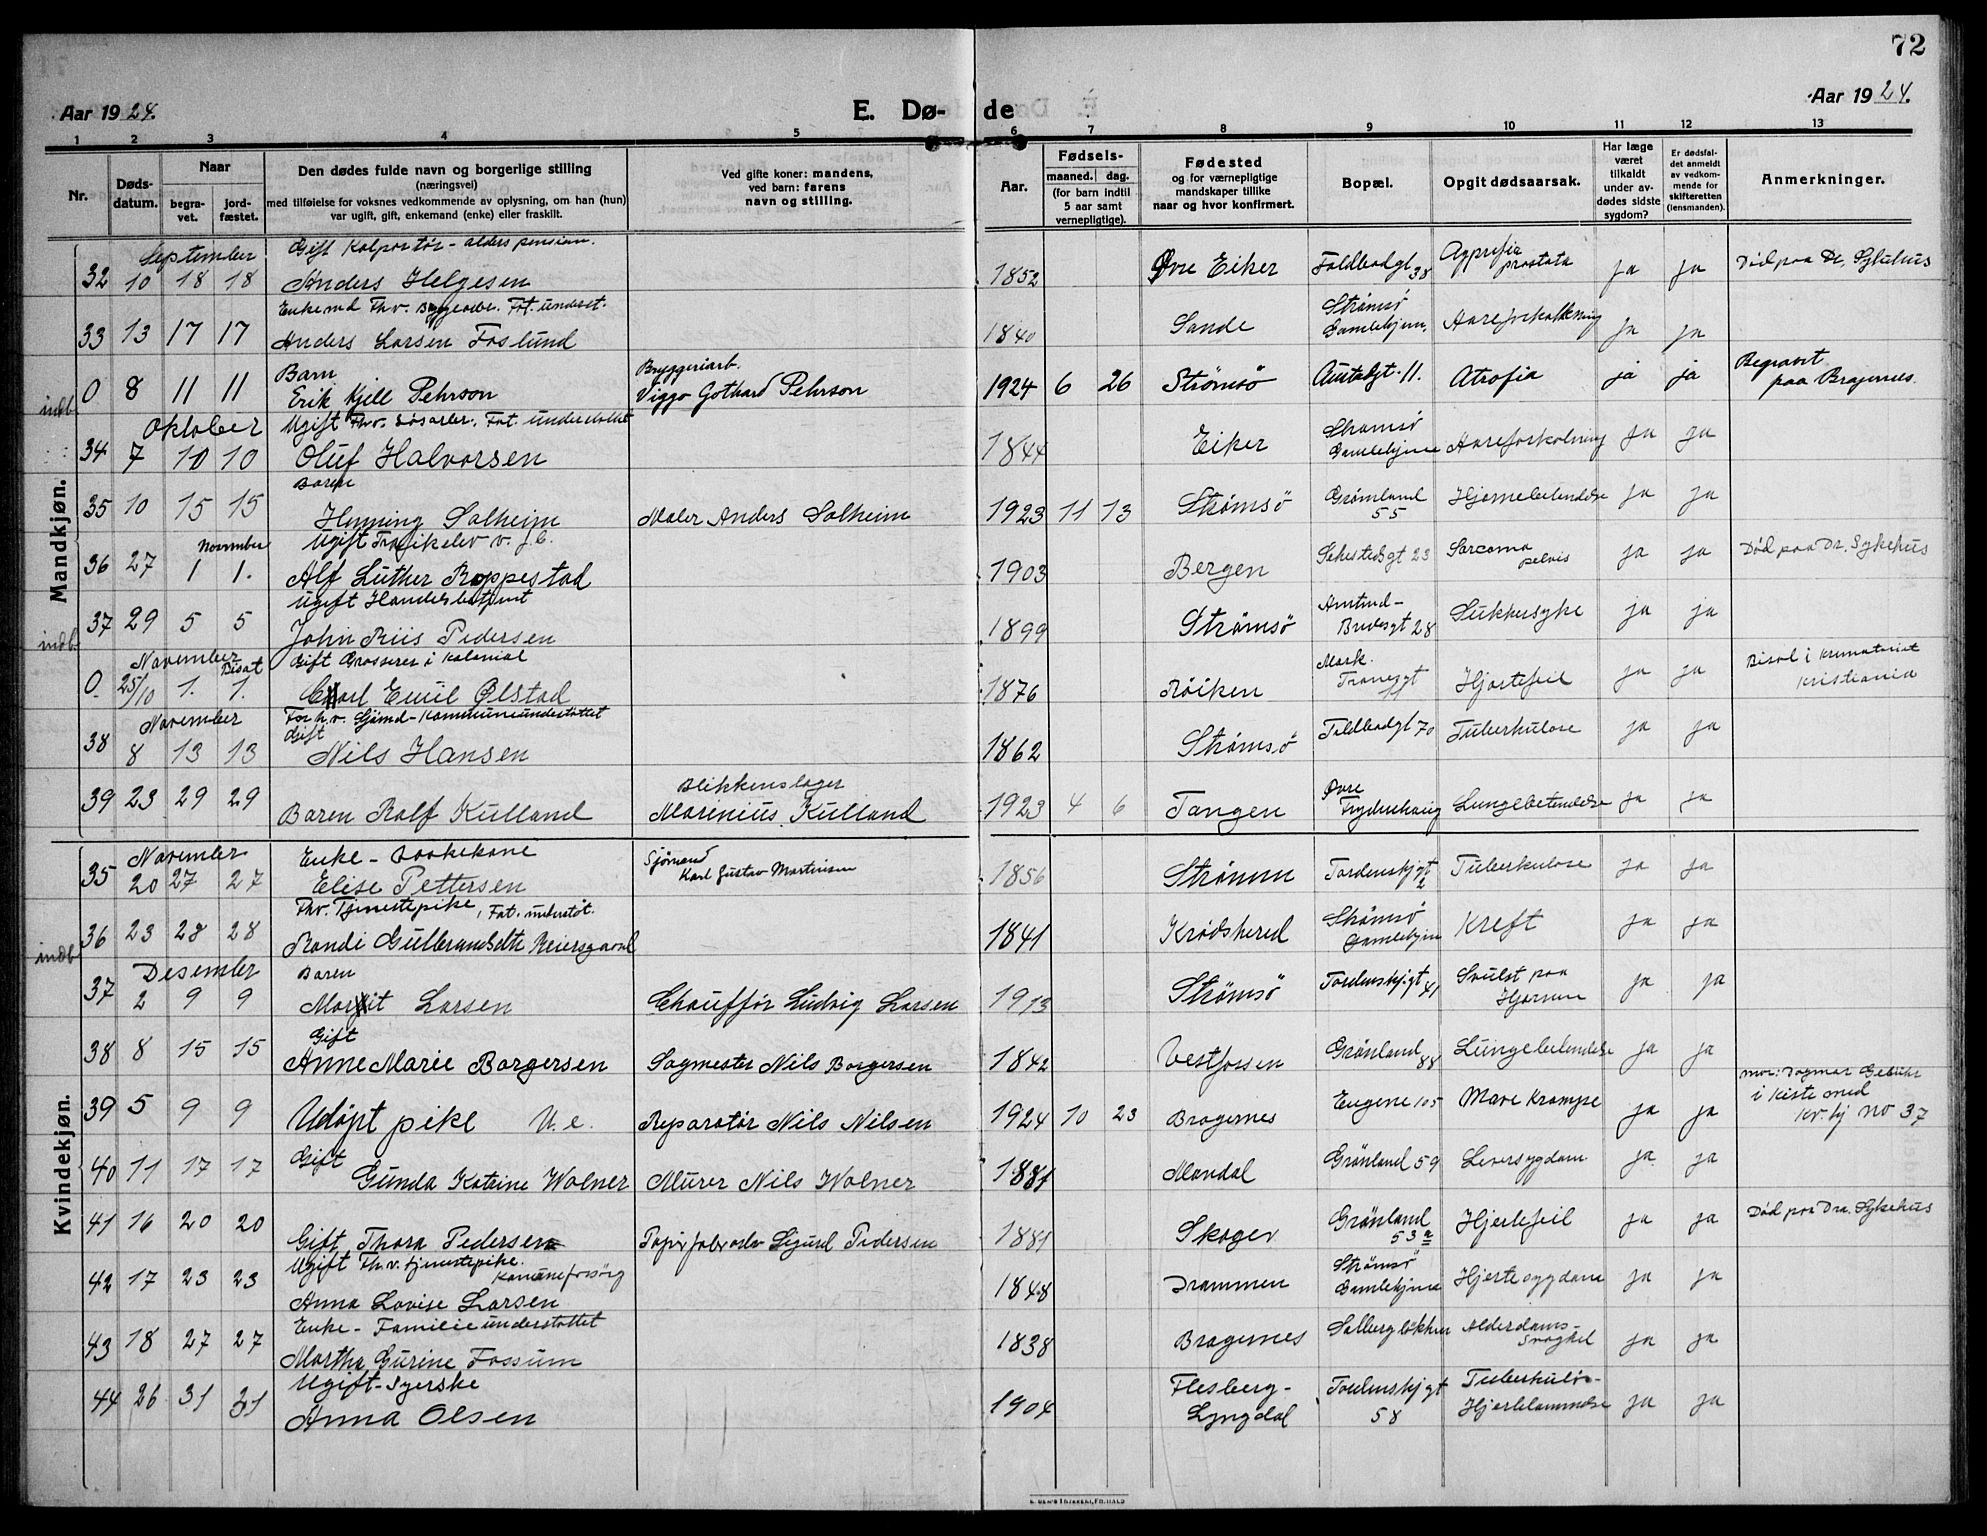 72
Aar 1924.
E. Dø-de
Aar 1924.
1 2 3 4 5 6 7 8 9 10 11 12 13
Nr.
Døds-datum.
Naar
begra-vet.
jord-fæstet.
Den dødes fulde navn og borgerlige stilling
(næringsvei)
med tilføielse for voksnes vedkommende av oplysning, om han (hun)
var ugift, gift, enkemand (enke) eller fraskilt.
Ved gifte koner: mandens,
ved barn: farens
navn og stilling.
Aar.
Fødsels-
maaned. dag.
(for barn indtil
5 aar samt
vernepligtige).
Fødested
og for værnepligtige
mandskaper tillike
naar og hvor konfirmert.
Bopæl.
Opgit dødsaarsak.
Har læge
været
tilkaldt
under av-
dødes sidste
sygdom?
Er dødsfal-
det anmeldt
av vedkom-
mende for
skifteretten
(lensmanden).
Anmerkninger.
Mandkjøn.
September Gift Kolportør - alders pension.
32 10 18 18 Anders Helgesen 1852 Øvre Eiker Toldbodgt 38 prostata ja ja Død paa Dr. Sykehus
Enkemd Fhv. Fat. underst.
33 13 17 17 Anders Larsen Foslund 1840 Sande Strømsö Gamlehjem Aareforkalkning ja ja
Barn Bryggeriarb.
indb. 0 8 11 11 Erik Kjell Pehrson Viggo Gothard Pehrson 1924 6 26 Strömsö 11. Atrofia ja ja Begravet paa Bragernes.
Oktober Ugift Fhv. Løsarbr. Fat. understöttet
34 7 10 10 Oluf Halvorsen 1844 Eiker Strømsö Gamlehjem Aareforkalkning ja ja
Barn
35 10 15 15 Henning Solheim Maler Anders Solheim 1923 11 13 Strømsö Grønland 55 Hjernebetendelse ja ja
November Ugift Trafikelev v. J.B.
36 27 1 1. Alf Luther Roppestad 1903 Bergen Sehestedsgt 23 Sarcoma pelvis ja ja Død paa Dr. Sykehus
Ugift Handelsbetjent
indb 37 29 5 5 John Riis Pedersen 1899 Strømsö Amtmd- 28 Sukkersyke ja ja
November Bisat Gift Grosserer i kolonial
0. 25/10 1. 1. Carl Emil Ølstad 1876 Röiken Mark. Tranesgt Hjertefeil ja ja Bisat i krematoriet Kristiania
November Forh.v. Sjömd - Kommuneunderstøttet
Gift
38 8 13 13 Nils Hansen 1862 Strømsö Toldbodgt 70 Tuberkulose ja ja
Blikkenslager
39 23 29 29 Baren Rolf Kulland Marinius Kulland 1923 4 6 Tangen Øvre Lungebetendelse ja ja
Kvindekjøn.
November Enke - Vaskekone Sjømand
35 20 27 27 Elise Pettersen Karl Gustav Martinsen 1856 Strömm Tordenskj.gt 2 Tuberkulose ja ja
Fhv. Tjenestepike, Fat. understöt.
indb 36 23 28 28 Randi Gulbrandsdtr Reiersgaard 1841 Krødsherred Strømsö Gamlehjem Kreft ja ja
Desember Baren
37 2 9 9 Margit Larsen Chauffør Ludvig Larsen 1913 Strømsö Tordenskj.gt 41 Svulst paa Hjernen ja ja
Gift
38 8 15 15 Anne Marie Borgersen Sagmester Nils Borgersen 1842 Vestfossen Grønland 88 Lungebetendelse ja ja
39 5 9 9 Udöpt pike U.e. Reparatör Nils Nilsen 1924 10 23 Bragernes Eugene 105 Mave Krampe ja ja mor: Dagmar i kiste med kv.kj no 37
Gift
40 11 17 17 Gunda Katrine Wolner Murer Nils Wolner 1881 Mandal Grönland 59 Leversygdom ja ja
41 16 20 20 Gift Thora Pedersen Papirfabr.arb. Sigurd Pedersen 1881 Skoger Grönland 53 a Hjertefeil ja ja Død paa Dra. Sykehus
Ugift Fh.v. tjenestepike.
42 17 23 23 Anna Lovise Larsen 1848 Drammen Strømsö Gamlehjem Hjertesygdom ja ja
Enke - Familie understøttet
43 18 27 27 Martha Gurine Fossum 1838 Bragernes Solbergløkken Alderdoms-svaghet ja ja
Ugift - Syerske
44 26 31 31 Anna Olsen 1904 Flesberg-Lyngdal Tordenskj.gt 58 Tuberkuløs- Hjertelammelse ja ja